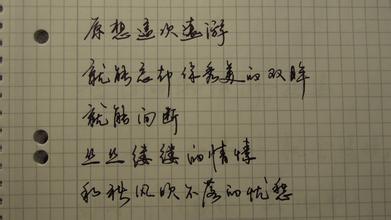 原想这次远游
就能忘却你秀美的双眸
就能间断
丝丝缕缕的情愫
和秋风吹不落的忧愁